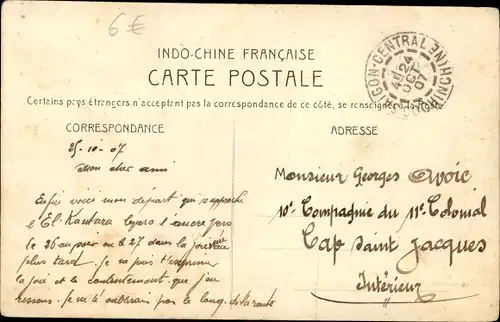 6 €
INDO-CHINE FRANÇAISE
CARTE POSTALE
SAIGON-CENTRAL
24
OCT
07
COCHINCHINE
Certains pays étrangers n'acceptent pas la correspondance de ce côté, se renseigner
CORRESPONDANCE
ADRESSE
25-10-07
Mon cher ami
Enfin voici mon depart qui s'approche
l'El-Kantara l'ancre
le 26 au soir ou le 27 dans la journée
plus tard. Je ne puis t'exprimer
la joie et le contentement que j'en
ressens. Je ne t'oublierai pas le long de la route
Monsieur Georges
10e Compagnie du 11e Colonial
Cap Saint Jacques
Intérieur